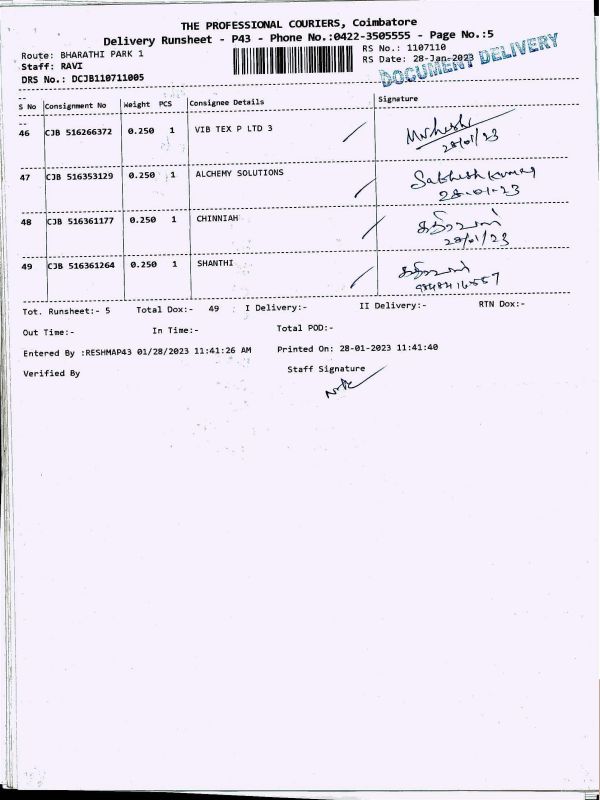 THE PROFESSIONAL COURIERS, Coimbatore
Delivery Runsheet - P43 - Phone No.:0422-3505555 - Page No.:5
Route: BHARATHI PARK 1
RS No.: 1107110
Staff: RAVI
RS Date: 28-Jan-2023
DRS No.: DCJB110711005
DOCUMENT DELIVERY
S No Consignment No Weight PCS Consignee Details Signature
46 CJB 516266372 0.250 1 VIB TEX P LTD 3
28/01/23
47 CJB 516353129 0.250 1 ALCHEMY SOLUTIONS Sathish Kumar
28-01-23
48 CJB 516361177 0.250 1 CHINNIAH
28/01/23
49 CJB 516361264 0.250 1 SHANTHI
Tot. Runsheet:- 5 Total Dox:- 49 I Delivery:- II Delivery:- RTN Dox:-
Out Time:- In Time:- Total POD:-
Entered By :RESHMAP43 01/28/2023 11:41:26 AM Printed On: 28-01-2023 11:41:40
Verified By Staff Signature